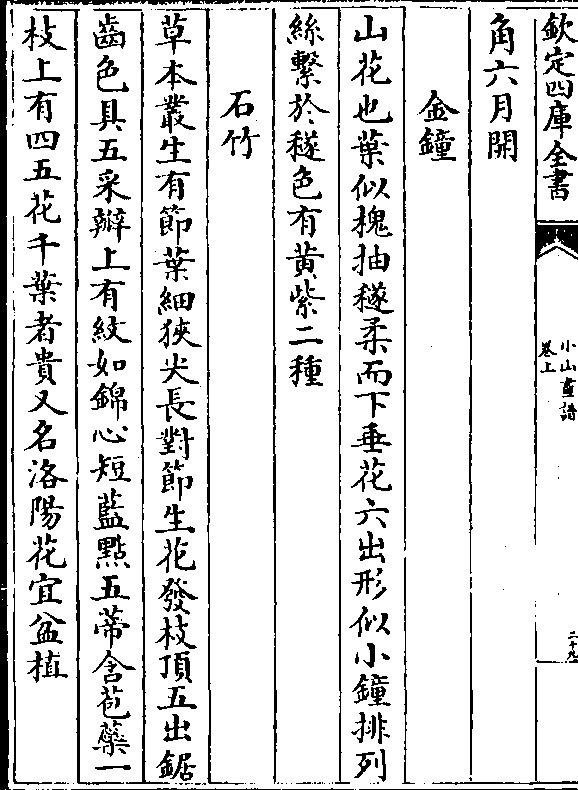 欽定四庫全書
小山畫譜
卷上
二十九
角六月開
金鐘
山花也葉似槐抽穟柔而下垂花六出形似小鐘排列
絲繫於穟色有黃紫二種
石竹
草本叢生有節葉細狹尖長對節生花發枝頂五出鋸
齒色具五采瓣上有紋如錦心短藍點五蒂含苞蘂一
枝上有四五花千葉者貴又名洛陽花宜盆植